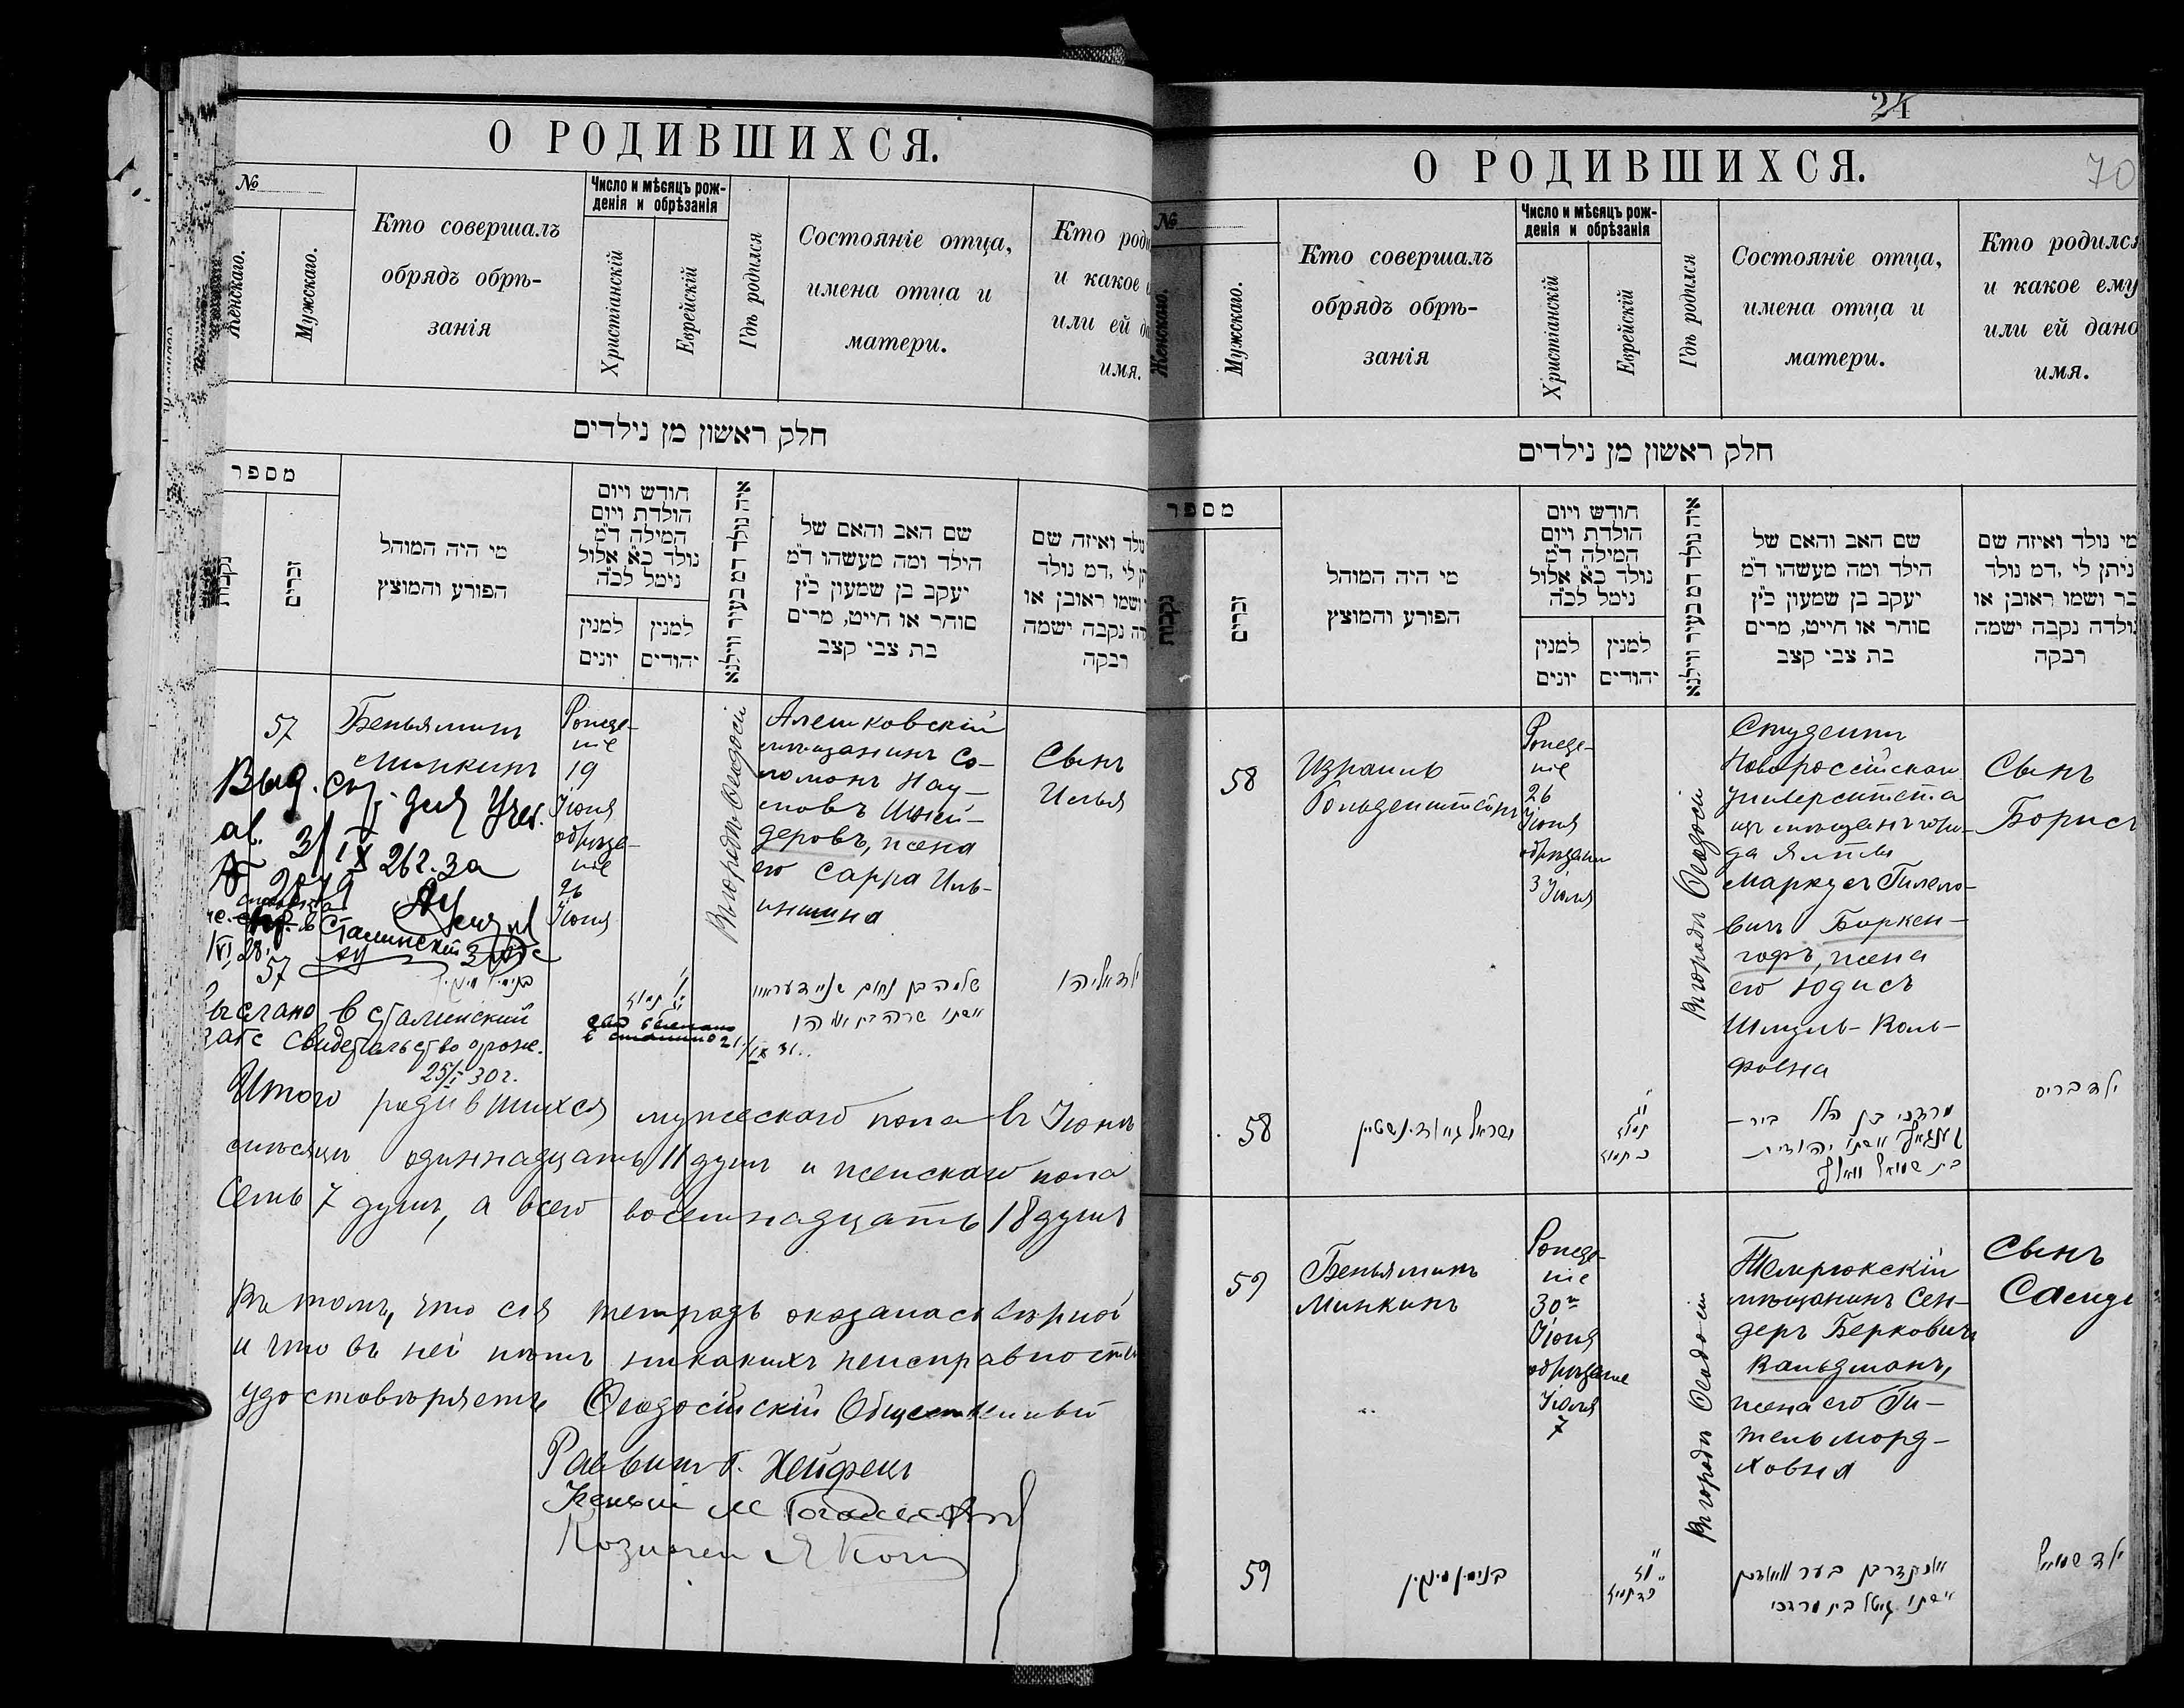 О РОДИВШИХСЯ.
№
Женскаго.
Мужскаго.
Кто совершалъ
обрядъ обрѣ-
занія
Число и мѣсяцъ рож-
денія и обрѣзанія
Христіанскій
Еврейскій
Гдѣ родился
Состояніе отца,
имена отца и
матери.
Кто роди
и какое
или ей да
имя.
חלק ראשון מן נילדים
מספר
זכרים
מי היה המוהל
הפורע והמוצץ
חודש ויום
הולדת ויום
המילה ד״מ
נולד כ״א אלול
נימל לכ״ה
למנין
יונים
למנין
יהודים
איה נולד דמ בעיר ווילנא
שם האב והאם של
הילד ומה מעשהו ד״מ
יעקב בן שמעון כ״ץ
סוחר או חייט, מרים
בת צבי קצב
נולד ואיזה שם
לי, דמ נולד
ושמו ראובן או
נקבה ישמה
רבקה
57
Беньяминъ
Минкинъ
Рожде-
ніе
19
Іюня
обрѣза-
ніе
26
Іюня
Въ городѣ Ѳеодосіи
Алешковскій
мѣщанинъ Со-
ломонъ Нау-
мовъ Шней-
деровъ, жена
его Сарра Иль-
инишна
Сынъ
Илья
Выд.
для
3/IX 26г. за
Сталинскій
57
בנימין מינקין
תמוז
שלמה בן נחום שניידעראוו
אשתו שרה בת אליהו
ילד אליהו
Выслано в Сталинский
загс свидетельство о рожд.
25/I 30г.
Итого родившихся мужескаго пола въ Іюнѣ
мѣсяцѣ одиннадцать 11 душъ и женскаго пола
семь 7 душъ, а всего восемнадцать 18 душъ
Въ томъ, что сія тетрадь оказалась вѣрной
и что въ ней нѣтъ никакихъ неисправностей
удостовѣряетъ Ѳеодосійскій Общественный
Раввинъ Г. Хейфецъ
Казначей
24
70
О РОДИВШИХСЯ.
№
Женскаго.
Мужскаго.
Кто совершалъ
обрядъ обрѣ-
занія
Число и мѣсяцъ рож-
денія и обрѣзанія
Христіанскій
Еврейскій
Гдѣ родился
Состояніе отца,
имена отца и
матери.
Кто родился
и какое ему
или ей дано
имя.
חלק ראשון מן נילדים
מספר
נקבות
זכרים
מי היה המוהל
הפורע והמוצץ
חודש ויום
הולדת ויום
המילה ד״מ
נולד כ״א אלול
נימל לכ״ה
למנין
יונים
למנין
יהודים
איה נולד דמ בעיר ווילנא
שם האב והאם של
הילד ומה מעשהו ד״מ
יעקב בן שמעון כ״ץ
סוחר או חייט, מרים
בת צבי קצב
מי נולד ואיזה שם
ניתן לי, דמ נולד
בר ושמו ראובן או
נולדה נקבה ישמה
רבקה
58
Израиль
Гольденштейнъ
Рожде-
ніе
26
Іюня
обрѣзаніе
3 Іюля
Въ городѣ Ѳеодосіи
Студентъ
Новороссійскаго
Университета
изъ мѣщанъ горо-
да Ялты
Маркусъ Гилело-
вичъ Биркен-
гофъ, жена
его Юдисъ
Шмуль-Воль-
фовна
Сынъ
Борисъ
58
ישראל גאלדינשטיין
תמוז
מרדכי בן הלל ביר־
קענגאף אשתו יהודית
בת שמואל וואלף
ילד בריס
59
Беньяминъ
Минкинъ
Рожде-
ніе
30го
Іюня
обрѣзаніе
Іюля
7
Въ городѣ Ѳеодосіи
Темрюкскій
мѣщанинъ Сен-
деръ Берковичъ
Вальдманъ,
жена его Ги-
тель Морд-
ховна
Сынъ
59
בנימין מינקין
אלכסנדר בן בער וואלדמן
אשתו גיטל בת מרדכי
ילד שמואל